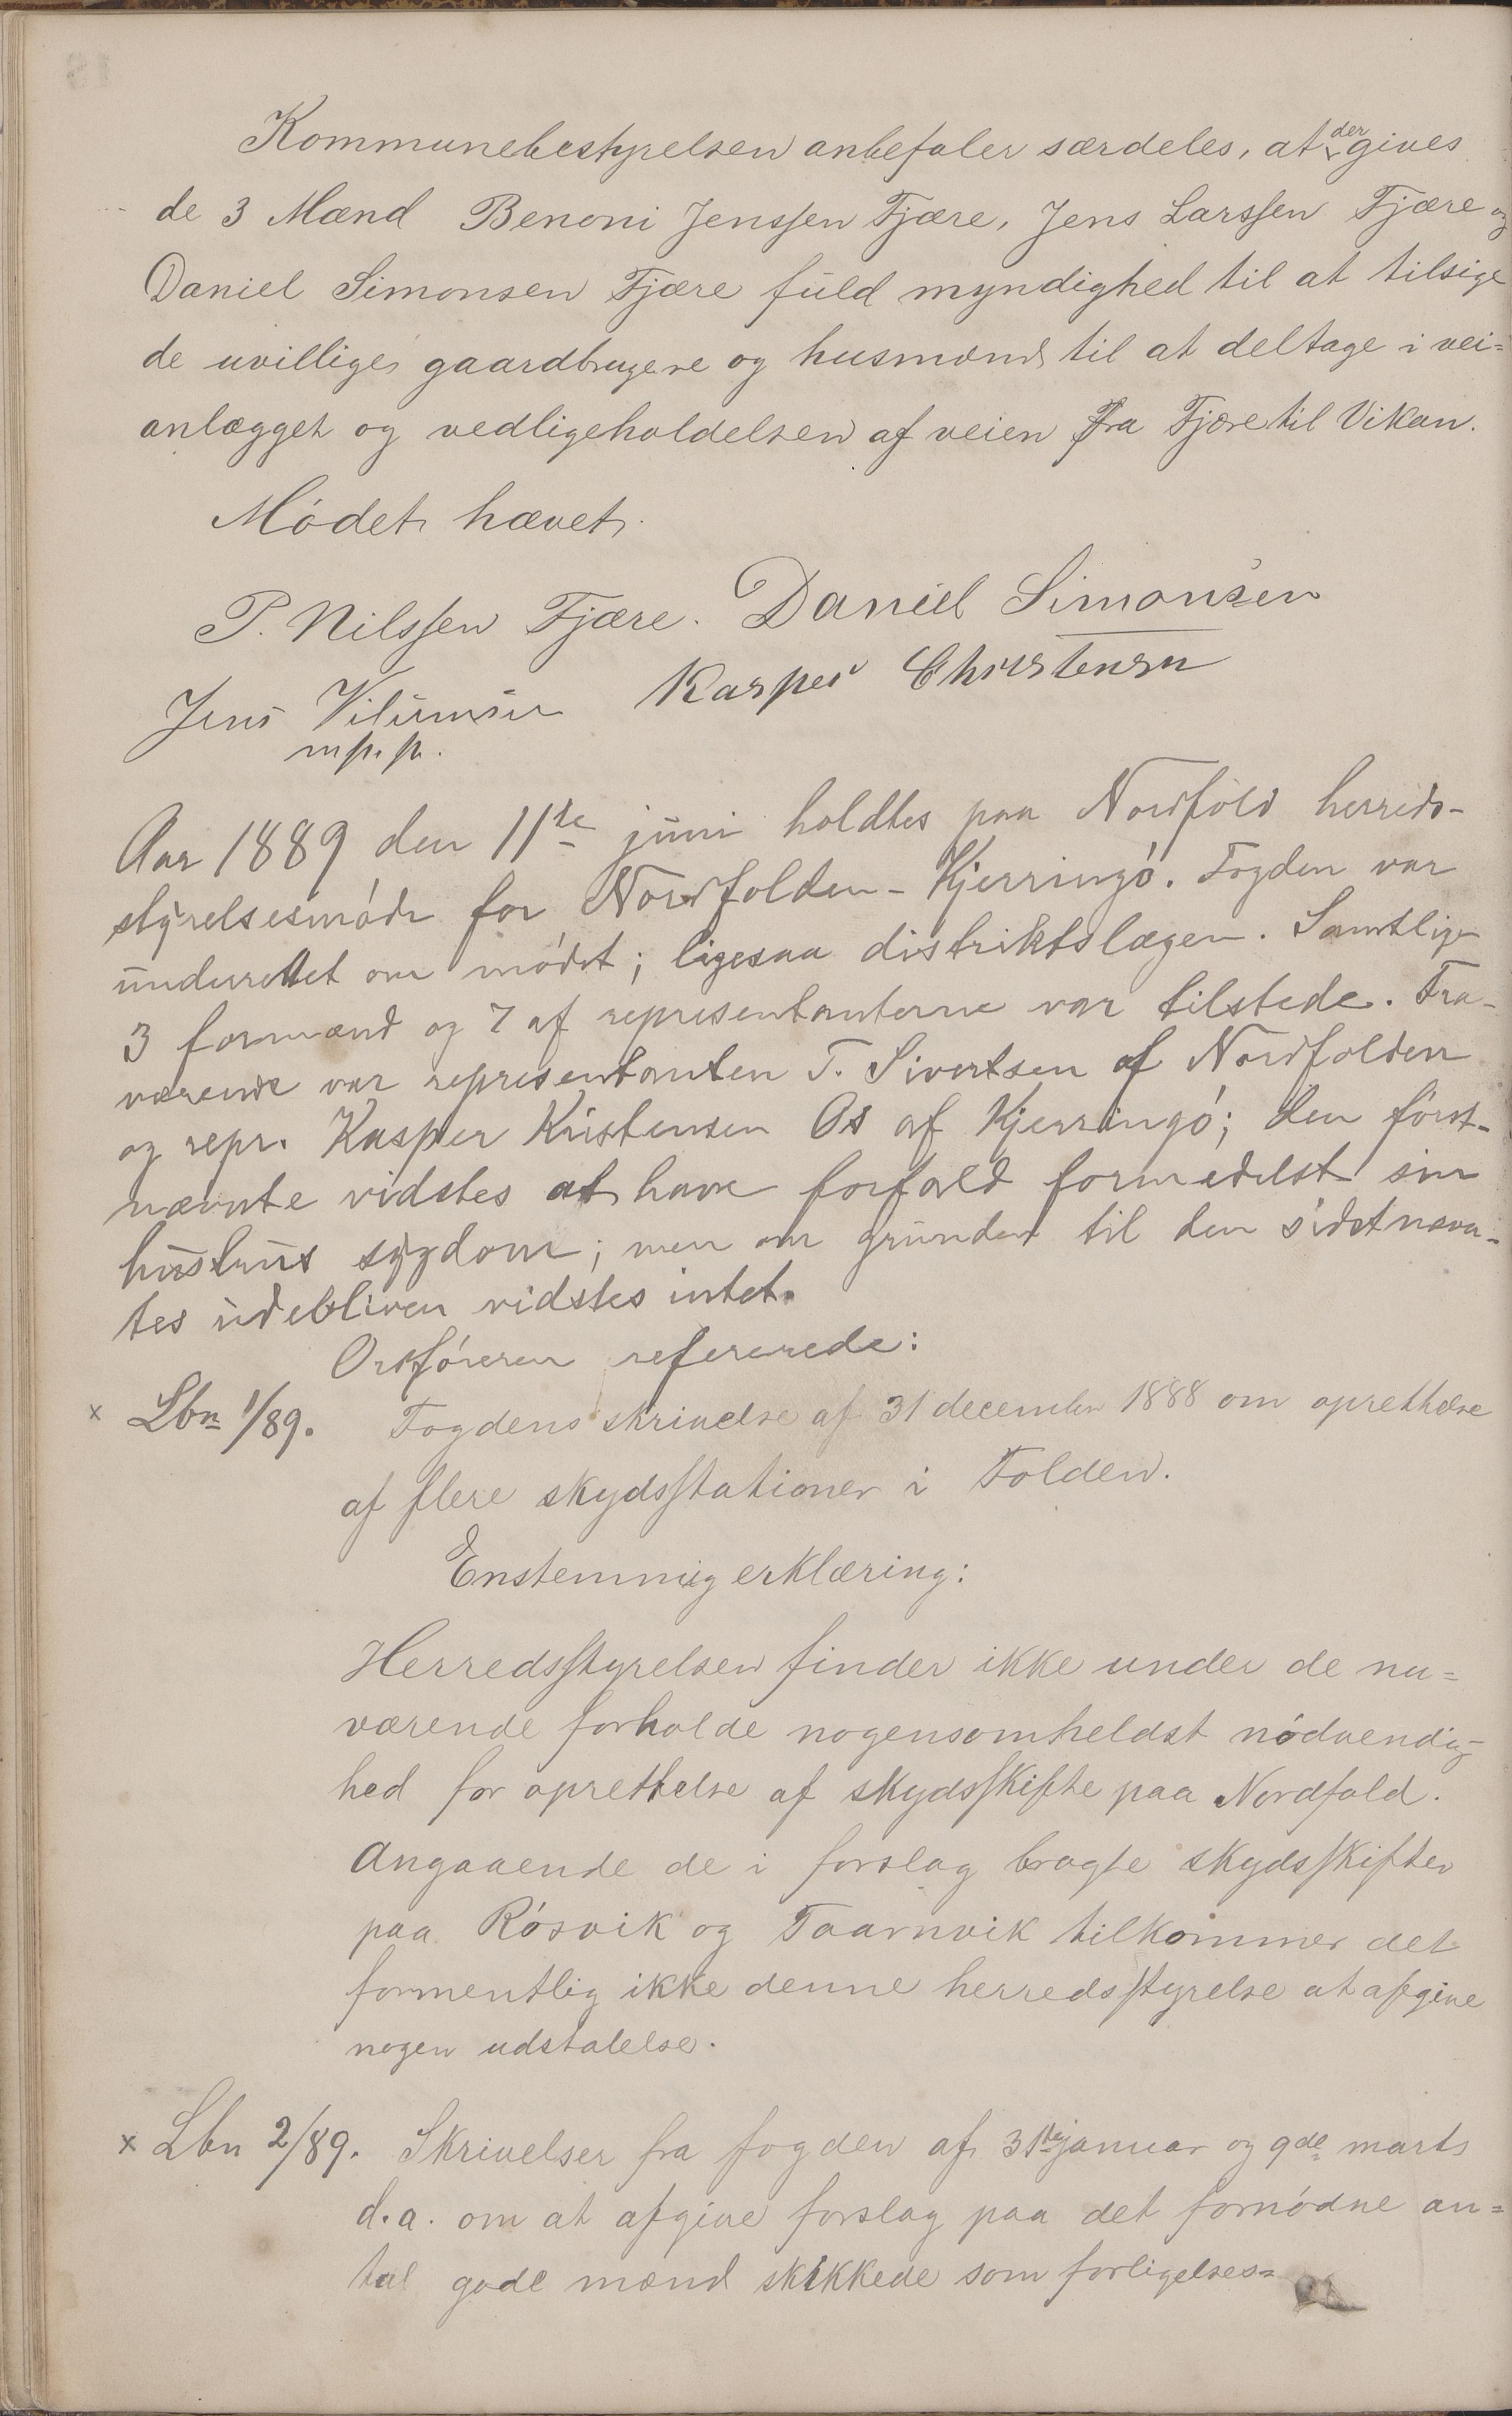 Kommunebestyrelsen anbefaler særdeles, at der gives
de 3 Mænd Benoni Jenssen Fjære, Jens Larssen Fjære og
Daniel Simonsen Fjære fuld myndighed til at tilsige
de uvillige gaardbrugere og husmænd til at deltage i vei=
anlægget og vedligeholdelsen af veien fra Fjære til Vikan.
Mödet hævet.
P. Nilssen Fjære. Daniel Simonsen
Jens Kasper Christensen
m.p.p.
Aar 1889 den 11te juni holdtes paa Nordfold herreds-
styrelsesmöde for Nordfolden-Kjerringö. Fogden var
underrettet om mödet; ligesaa distriktslægen. Samtlige
3 formænd og 7 af representanterne var tilstede. Fra-
værende var representanten T. Sivertsen af Nordfolden
og repr. Kasper Kristensen Os af Kjerringö; den först-
nævnte vidstes at have forfald formedelst sin
hustrus sygdom; men om grunden til den sidstnævn-
tes udebliven vidstes intet.
Ordföreren refererede:
x Lbn 1/89. Fogdens skrivelse af 31 december 1888 om oprettelse
af flere skydsstationer i Folden.
Enstemmig erklæring:
Herredsstyrelsen finder ikke under de nu=
værende forholde nogensomheldst nödvendig-
hed for oprettelse af skydsskifte paa Nordfold.
Angaaende de i forslag bragte skydsskifter
paa Rösvik og Taarnvik tilkommer det
formentlig ikke denne herredsstyrelse at afgive
nogen udtalelse.
x Lbn 2/89. Skrivelser fra fogden af 31te januar og 9de marts
d.a. om at afgive forslag paa det fornödne an=
tal gode mænd skikkede som forligelses=